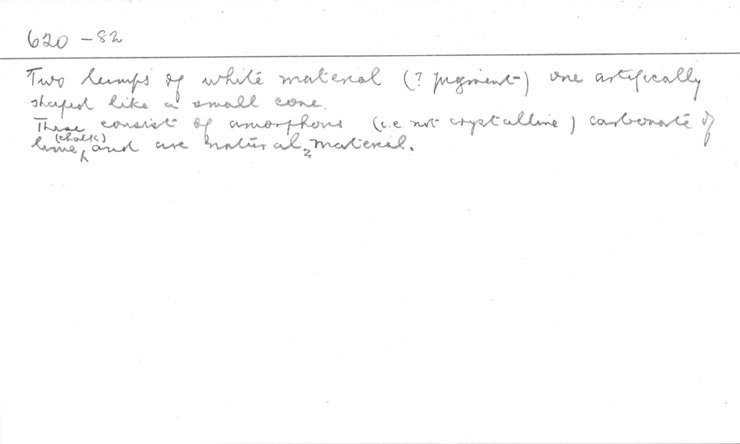 620 - 82
Two lumps of white material (? pigment) one artifically
shaped like a small cone.
These consist of amorphous (i.e not crystalline) carbonate of
lime (chalk) and are natural material.